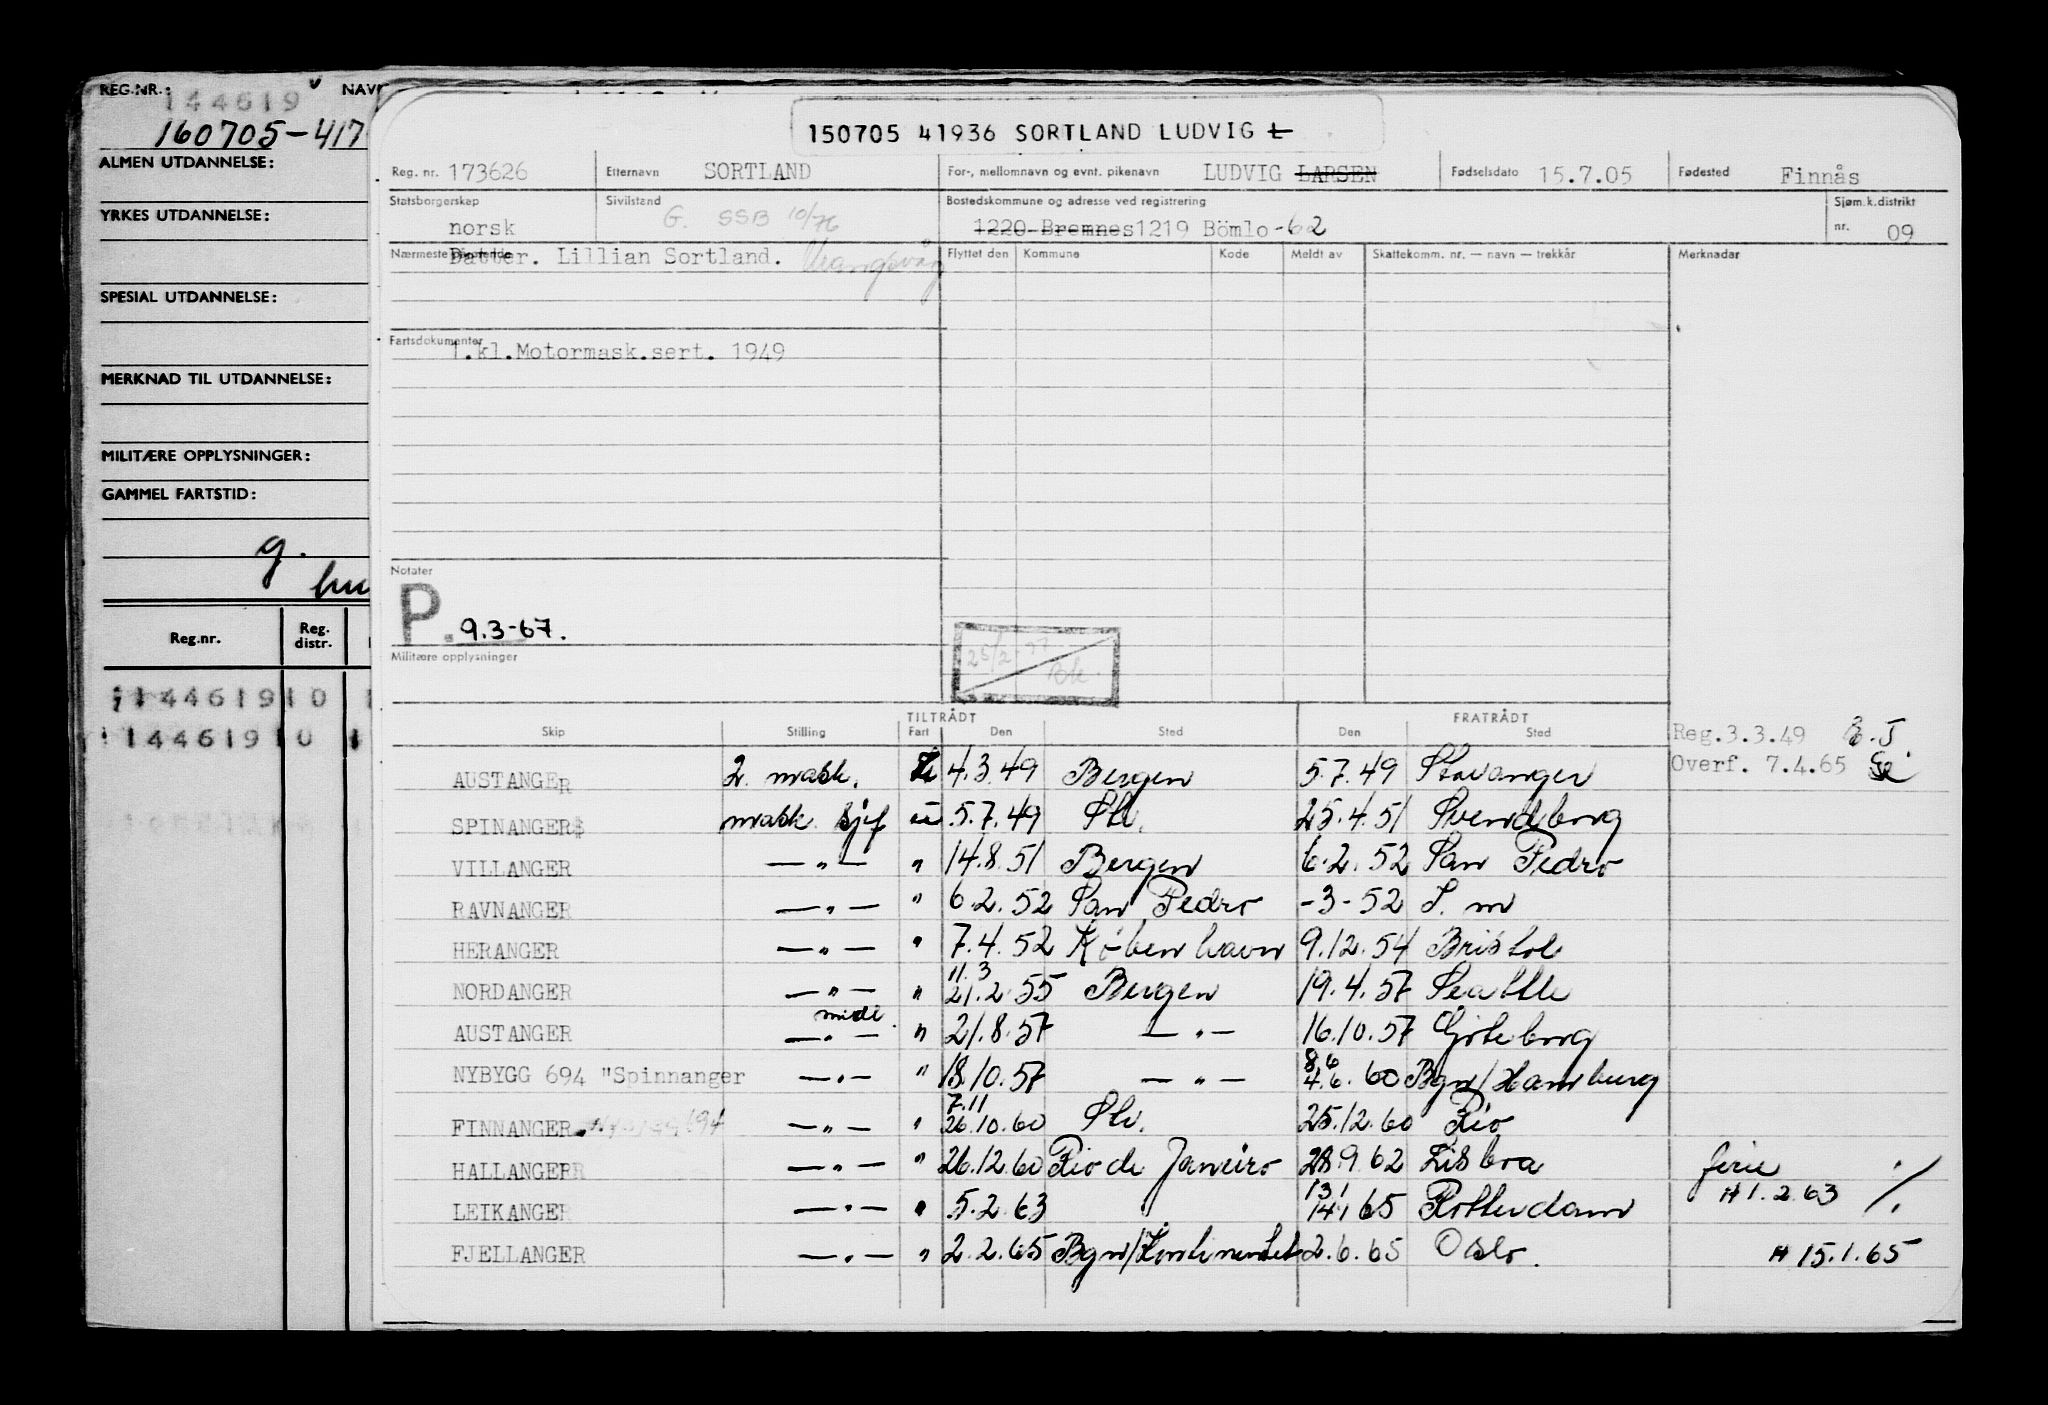 REG.NR.: 144619 NAVN
160705-417
ALMEN UTDANNELSE:
YRKES UTDANNELSE:
SPESIAL UTDANNELSE:
MERKNAD TIL UTDANNELSE:
MILITÆRE OPPLYSNINGER:
GAMMEL FARTSTID:
g.
Reg.nr. Reg. distr.
144619 0
144619 0
150705 41936 SORTLAND LUDVIG L
Reg. nr. 173626 Etternavn SORTLAND For-, mellomnavn og evnt. pikenavn LUDVIG LARSEN Fødselsdato 15.7.05 Fødested Finnås
Statsborgerskap norsk Sivilstand G. SSB 10/76 Bostedskommune og adresse ved registrering 1220 Bremnes 1219 Bömlo -62 Sjøm.k.distrikt nr. 09
Nærmeste Datter. Lillian Sortland. Flyttet den Kommune Kode Meldt av Skattekomm. nr. — navn — trekkår Merknader
Fartsdokumenter
1.kl.Motormask.sert. 1949
Notater
P. 9.3-67.
Militære opplysninger
25/2-77
Bk.
TILTRÅDT FRATRÅDT
Skip Stilling Fart Den Sted Den Sted
Reg.3.3.49
Overf. 7.4.65
AUSTANGER 2. mask. 4.3.49 Bergen 5.7.49 Stavanger
SPINANGER mask sjef u .5.7.49 Stv. 25.4.51 Svendborg
VILLANGER —„— „ 14.8.51 Bergen 6.2.52 San Pedro
RAVNANGER —„— „ 6.2.52 San Pedro -3-52 S. m
HERANGER —„— „ 7.4.52 København 9.12.54 Bristol
NORDANGER —„— „ 11.3 21.2.55 Bergen 19.4.57 Seattle
AUSTANGER midl. —„— „ 21.8.57 —„— 16.10.57 Göteborg
NYBYGG 694 "Spinnanger —„— „ 18.10.57 —„— 8.6 4.6.60 Bgn/Hamburg
FINNANGER 694 —„— „ 7.11 26.10.60 Stv. 25.12.60 Rio
HALLANGER —„— „ 26.12.60 Rio de Janeiro 28.9.62 Lisboa ferie
LEIKANGER —„— „ 5.2.63 13.1 14.1 65 Rotterdam H 1.2.63 %
FJELLANGER —„— „ 2.2.65 Bgn/Kontinentet 2.6.65 Oslo. H 15.1.65